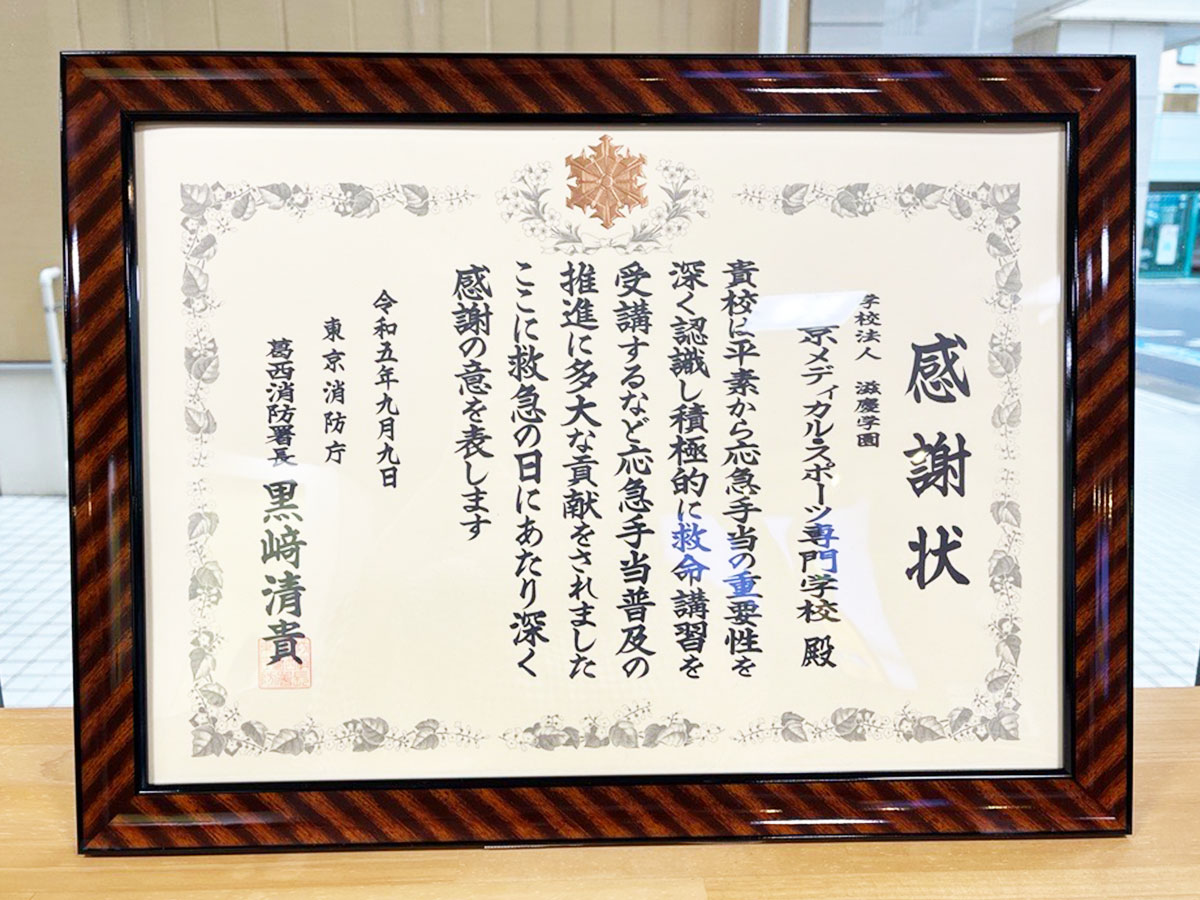 感謝状
学校法人 滋慶学園
京メディカル・スポーツ専門学校 殿
貴校は平素から応急手当の重要性を
深く認識し積極的に救命講習を
受講するなど応急手当普及の
推進に多大な貢献をされました
ここに救急の日にあたり深く
感謝の意を表します
令和五年九月九日
東京消防庁
葛西消防署長 黒﨑清貴